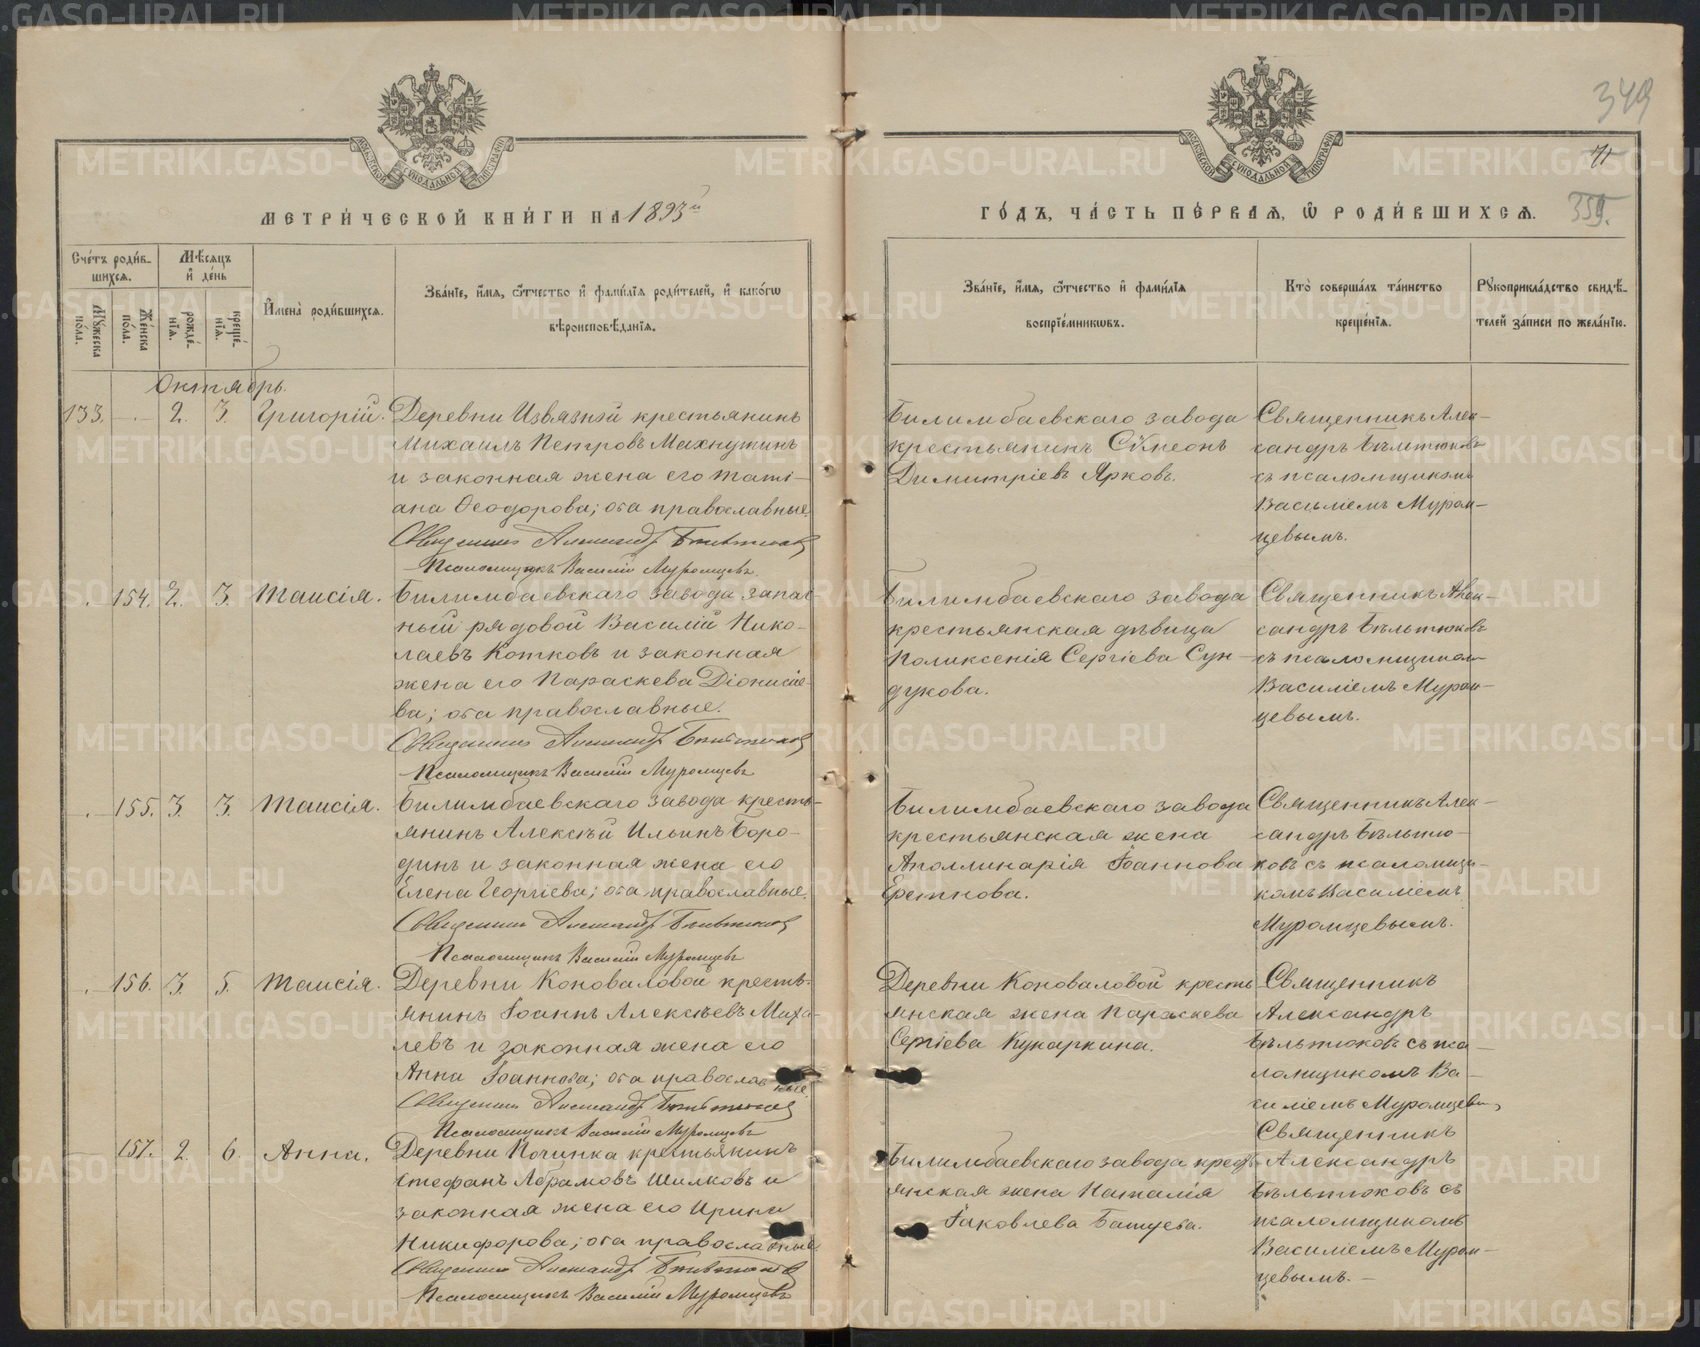 349
71
359.
МЕТРИ́ЧЕСКОЙ КНИ́ГИ НА 1893й
ГО́ДЪ, ЧА́СТЬ ПЕ́РВАЯ, Ѡ҆ РОДИ́ВШИХСЯ.
Сче́тъ роди́в-
шихся.
Мѣ́сяцъ
и҆ де́нь
Мꙋ́жеска
по́ла.
Же́нска
по́ла.
рожде́-
нїѧ.
креще́-
нїѧ.
И҆мена̀ роди́вшихся.
Зва́нїе, и҆́мѧ, ѻ҆́тчество и҆ фами́лїѧ роди́телей, и҆ како́гѡ
вѣроисповѣ́данїѧ.
Зва́нїе, и҆́мѧ, ѻ҆́тчество и҆ фами́лїѧ
воспрїе́мникѡвъ.
Кто̀ соверша́лъ та́инство
креще́нїѧ.
Рꙋкоприкла́дство свидѣ́-
телей за́писи по жела́нїю.
Октябрь.
133. 2. 3. Григорій.
Деревни Извязной крестьянинъ
Михаилъ Петровъ Махнуткинъ
и законная жена его Тати-
ана Ѳеодорова; оба православные.
Священникъ Александръ Бѣльтюковъ
Псаломщикъ Василій Муромцевъ.
Билимбаевскаго завода
крестьянинъ Сѵмеонъ
Димитріевъ Ярковъ.
Священникъ Алек-
сандръ Бѣльтюковъ
съ псаломщикомъ
Василіемъ Муром-
цевымъ.
154. 2. 3. Таисія.
Билимбаевскаго завода запас-
ный рядовой Василій Нико-
лаевъ Котковъ и законная
жена его Параскева Діонисіе-
ва; оба православные.
Священникъ Александръ Бѣльтюковъ
Псаломщикъ Василій Муромцевъ
Билимбаевскаго завода
крестьянская дѣвица
Поликсенія Сергіева Сун-
дукова.
Священникъ Алек-
сандръ Бѣльтюковъ
съ псаломщикомъ
Василіемъ Муром-
цевымъ.
155. 3. 3. Таисія.
Билимбаевскаго завода кресть-
янинъ Алексѣй Ильинъ Боро-
динъ и законная жена его
Елена Георгіева; оба православные.
Священникъ Александръ Бѣльтюковъ
Псаломщикъ Василій Муромцевъ
Билимбаевскаго завода
крестьянская жена
Аполлинарія Іоаннова
Еретнова.
Священникъ Алек-
сандръ Бѣльтю-
ковъ съ псаломщи-
комъ Василіемъ
Муромцевымъ.
156. 3. 5. Таисія.
Деревни Коноваловой кресть-
янинъ Іоаннъ Алексѣевъ Миха-
левъ и законная жена его
Анна Іоаннова; оба православные
Священникъ Александръ Бѣльтюковъ
Псаломщикъ Василій Муромцевъ
Деревни Коноваловой кресть
янская жена Параскева
Сергіева Кукаркина.
Священникъ
Александръ
Бѣльтюковъ съ пса-
ломщикомъ Ва-
силіемъ Муромцевы,
157. 2. 6. Анна.
Деревни Починка крестьянинъ
Стефанъ Абрамовъ Шилковъ и
законная жена его Ирина
Никифорова; оба православные
Священникъ Александръ Бѣльтюковъ
Псаломщикъ Василій Муромцевъ
Билимбаевскаго завода кресть-
янская жена Наталія
Іаковлева Батуева.
Священникъ
Александръ
Бѣльтюковъ съ
псаломщикомъ
Василіемъ Муром-
цевымъ.
METRIKI.GASO-URAL.RU